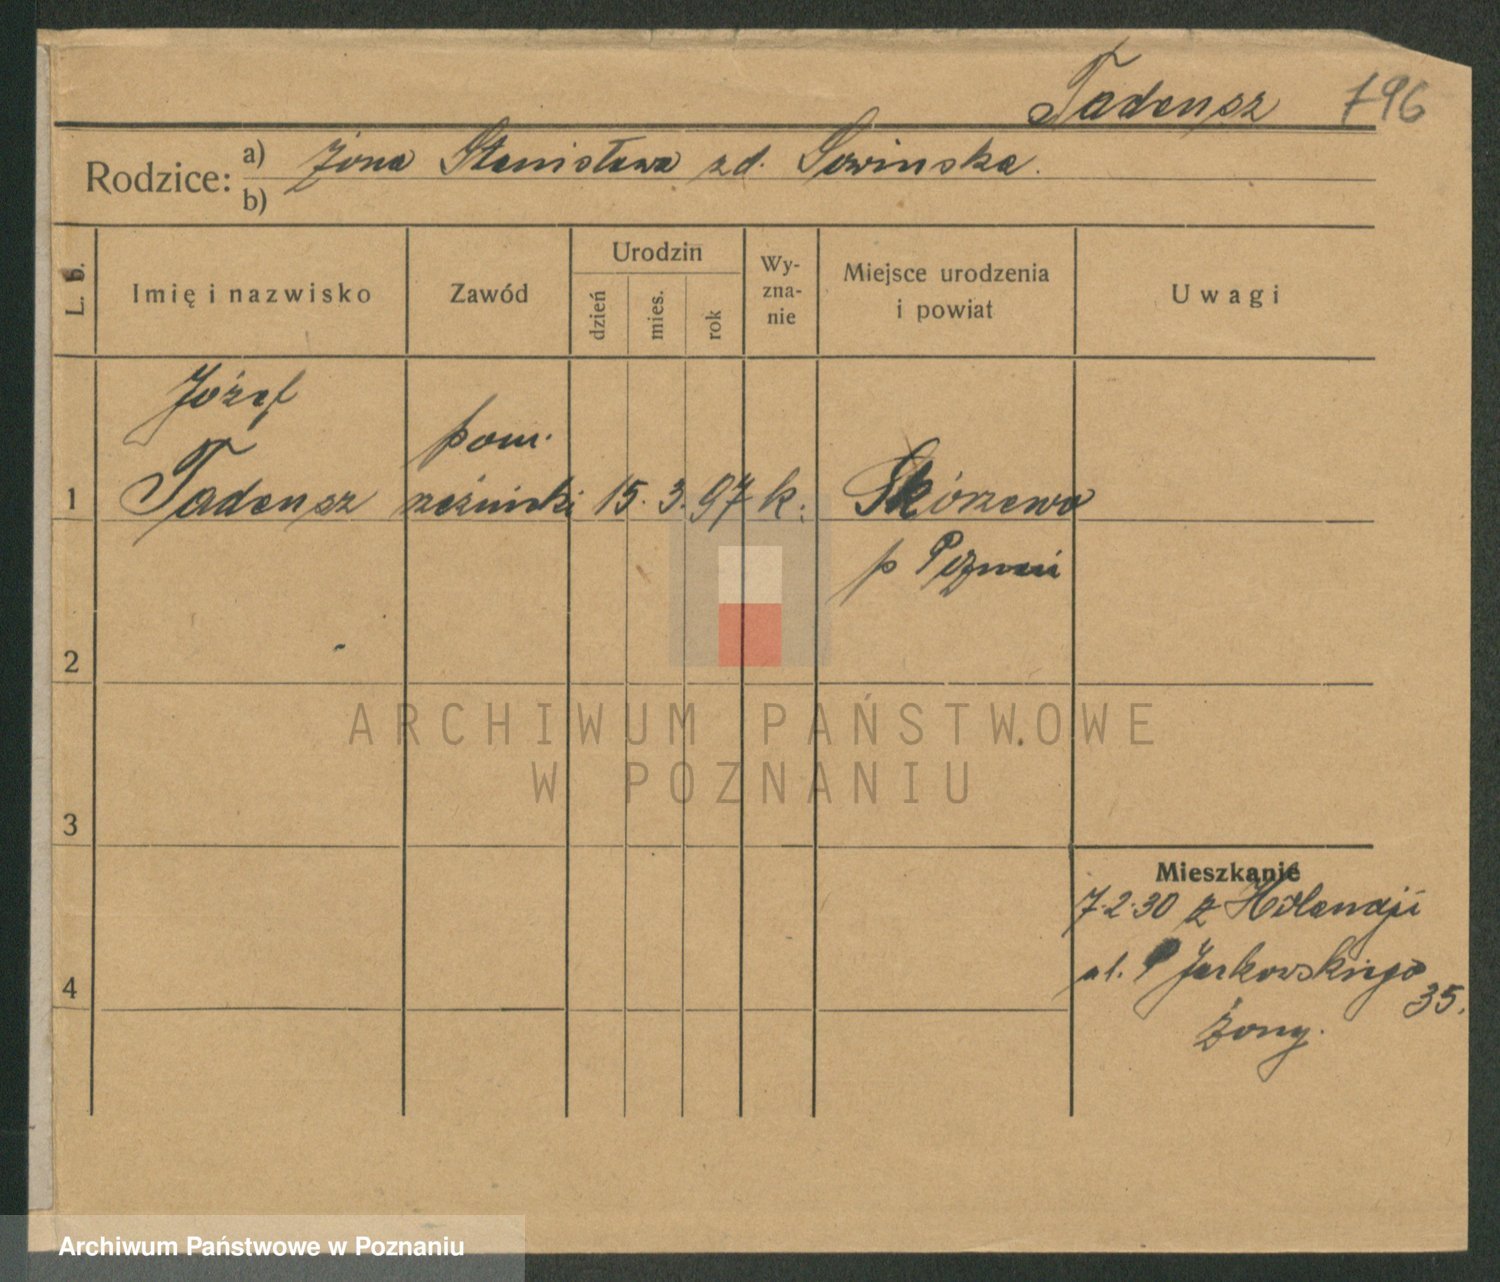 Tadeusz 796
Rodzice: a) żona Stanisława zd. Sowinska.
b)
L. b.
Imię i nazwisko
Zawód
Urodzin
dzień
mies.
rok
Wy-
zna-
nie
Miejsce urodzenia
i powiat
Uwagi
Józef
pom.
1 Tadeusz rzeźnicki 15. 3. 97 k. Skórzewo
p Poznań
2
ARCHIWUM PAŃSTWOWE
W POZNANIU
3
Mieszkanie
7.2.30 z Holandji
4 ul. P Jarkowskiego
35.
żony.
Archiwum Państwowe w Poznaniu